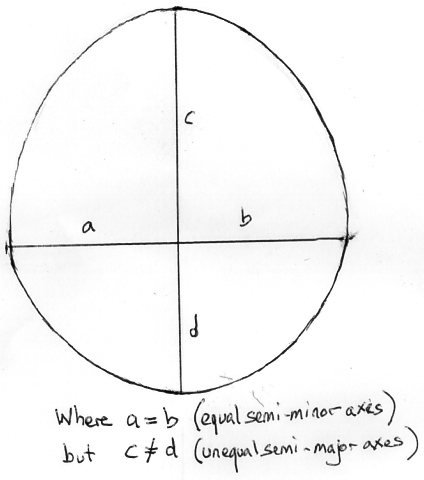 c
a
b
d
Where a = b (equal semi-minor axes)
but c ≠ d (unequal semi-major axes)